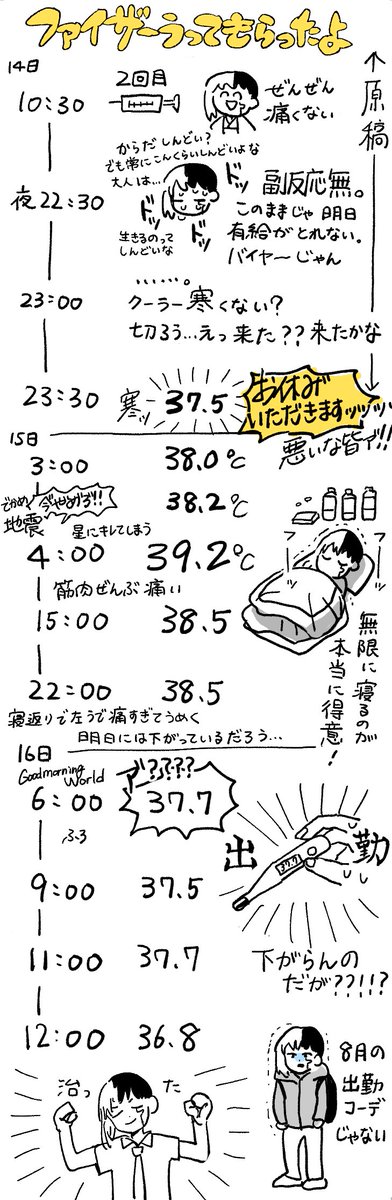 ファイザーうってもらったよ
14日
10:30
2回目
ぜんぜん
痛くない
原稿
からだしんどい?
でも常にこんくらいしんどいよな
大人は…
ドッ
ドッ
ドッ
生きるのって
しんどいな
夜22:30
副反応無。
このままじゃ明日
有給がとれない。
バイヤーじゃん
23:00
……。
クーラー寒くない?
切ろう…えっ来た??来たかな
23:30
寒ッ
37.5
お休み
いただきますッッッッ
悪いな皆ァ!!
15日
3:00
38.0℃
でかめ
地震
今やめろ!!
星にキレてしまう
38.2℃
4:00
39.2℃
筋肉ぜんぶ痛い
15:00
38.5
無限に寝るのが
本当に得意!
22:00
38.5
寝返りで左うで痛すぎてうめく
明日には下がっているだろう…
16日
Goodmorning
World
6:00
37.7
出勤
37.7
9:00
37.5
11:00
37.7
下がらんの
だが??!!?
12:00
36.8
治った
8月の
出勤
コーデ
じゃない